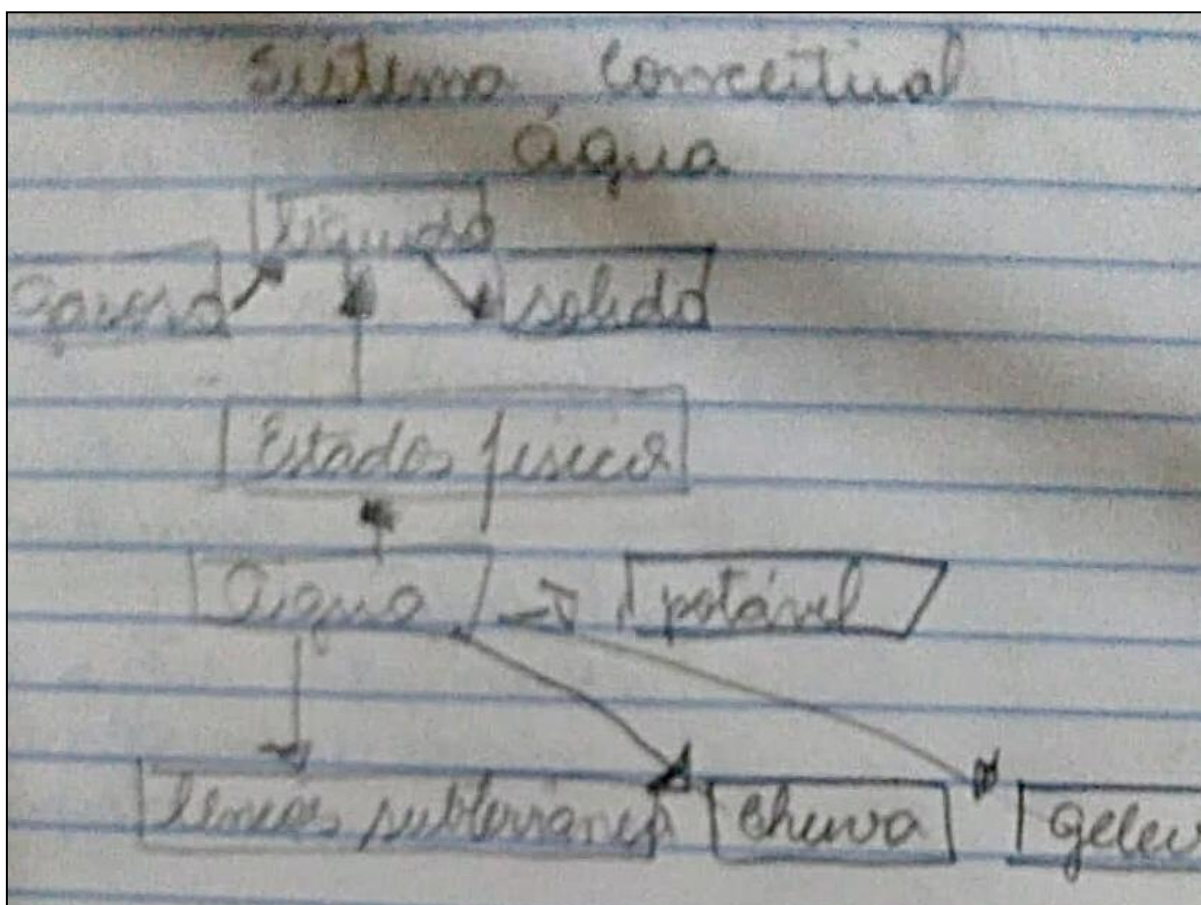 Sistema Conceitual
água
líquido
gasoso
solido
Estados físicos
água
potável
lençóis subterrâneos
chuva
gelei